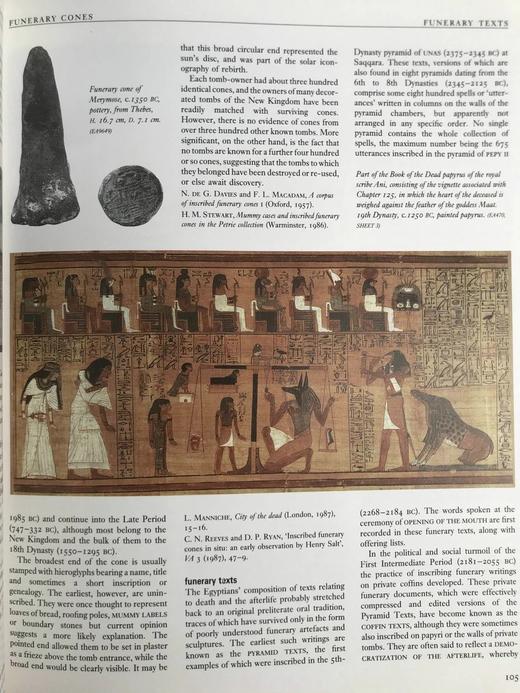 FUNERARY CONES
FUNERARY TEXTS
Funerary cone of
Merymose, c.1350 BC,
pottery, from Thebes,
H. 16.7 cm, D. 7.1 cm.
(EA9649)
that this broad circular end represented the
sun's disc, and was part of the solar icon-
ography of rebirth.
Each tomb-owner had about three hundred
identical cones, and the owners of many decor-
ated tombs of the New Kingdom have been
readily matched with surviving cones.
However, there is no evidence of cones from
over three hundred other known tombs. More
significant, on the other hand, is the fact that
no tombs are known for a further four hundred
or so cones, suggesting that the tombs to which
they belonged have been destroyed or re-used,
or else await discovery.
N. DE G. DAVIES and F. L. MACADAM, A corpus
of inscribed funerary cones I (Oxford, 1957).
H. M. STEWART, Mummy cases and inscribed funerary
cones in the Petrie collection (Warminster, 1986).
Dynasty pyramid of UNAS (2375–2345 BC) at
Saqqara. These texts, versions of which are
also found in eight pyramids dating from the
6th to 8th Dynasties (2345–2125 BC),
comprise some eight hundred spells or 'utter-
ances' written in columns on the walls of the
pyramid chambers, but apparently not
arranged in any specific order. No single
pyramid contains the whole collection of
spells, the maximum number being the 675
utterances inscribed in the pyramid of PEPY II
Part of the Book of the Dead papyrus of the royal
scribe Ani, consisting of the vignette associated with
Chapter 125, in which the heart of the deceased is
weighed against the feather of the goddess Maat.
19th Dynasty, c.1250 BC, painted papyrus. (EA470,
SHEET 3)
1985 BC) and continue into the Late Period
(747–332 BC), although most belong to the
New Kingdom and the bulk of them to the
18th Dynasty (1550–1295 BC).
The broadest end of the cone is usually
stamped with hieroglyphs bearing a name, title
and sometimes a short inscription or
genealogy. The earliest, however, are unin-
scribed. They were once thought to represent
loaves of bread, roofing poles, MUMMY LABELS
or boundary stones but current opinion
suggests a more likely explanation. The
pointed end allowed them to be set in plaster
as a frieze above the tomb entrance, while the
broad end would be clearly visible. It may be
L. MANNICHE, City of the dead (London, 1987),
15–16.
C. N. REEVES and D. P. RYAN, 'Inscribed funerary
cones in situ: an early observation by Henry Salt',
VA 3 (1987), 47–9.
funerary texts
The Egyptians' composition of texts relating
to death and the afterlife probably stretched
back to an original preliterate oral tradition,
traces of which have survived only in the form
of poorly understood funerary artefacts and
sculptures. The earliest such writings are
known as the PYRAMID TEXTS, the first
examples of which were inscribed in the 5th-
(2268–2184 BC). The words spoken at the
ceremony of OPENING OF THE MOUTH are first
recorded in these funerary texts, along with
offering lists.
In the political and social turmoil of the
First Intermediate Period (2181–2055 BC)
the practice of inscribing funerary writings
on private coffins developed. These private
funerary documents, which were effectively
compressed and edited versions of the
Pyramid Texts, have become known as the
COFFIN TEXTS, although they were sometimes
also inscribed on papyri or the walls of private
tombs. They are often said to reflect a DEMO-
CRATIZATION OF THE AFTERLIFE, whereby
105